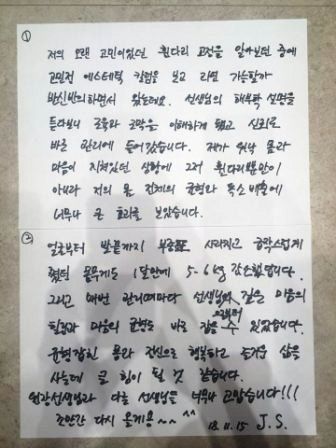 ①
저의 오랜 고민이었던 휜다리 교정을 알아보던 중에
고민전 에스테틱 칼럼을 보고 과연 가능할까
반신반의하면서 왔는데요. 선생님의 해부학 설명을
듣다보니 근육과 근막을 이해하게 됐고 신뢰로
바로 관리에 들어갔습니다. 제가 워낙 몸과
마음이 지쳐있던 상황에 그저 휜다리뿐만이
아니라 저의 몸 전체의 균형과 독소배출에
너무나 큰 효과를 보았습니다.
②
얼굴부터 발끝까지 부종도 사라지고 급작스럽게
쪘던 몸무게도 1달만에 5-6kg 감소했답니다.
그리고 매번 관리때마다 선생님의 깊은 마음의
힐링과 마음의 균형도 바로 잡을 수 있었습니다.
균형잡힌 몸과 정신으로 행복하고 즐거운 삶을
사는데 큰 힘이 될 것 같습니다.
원장선생님과 다른 선생님들 너무나 고맙습니다!!!
조만간 다시 올게용~~ ^^ 18.11.15 J.S.